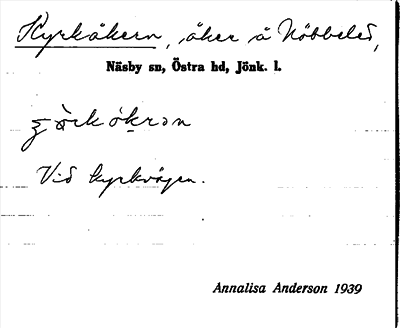 Kyrkåkern, åker å Nöbbeled,
Näsby sn, Östra hd, Jönk. l.
Vid kyrkvägen.
Annalisa Anderson 1939